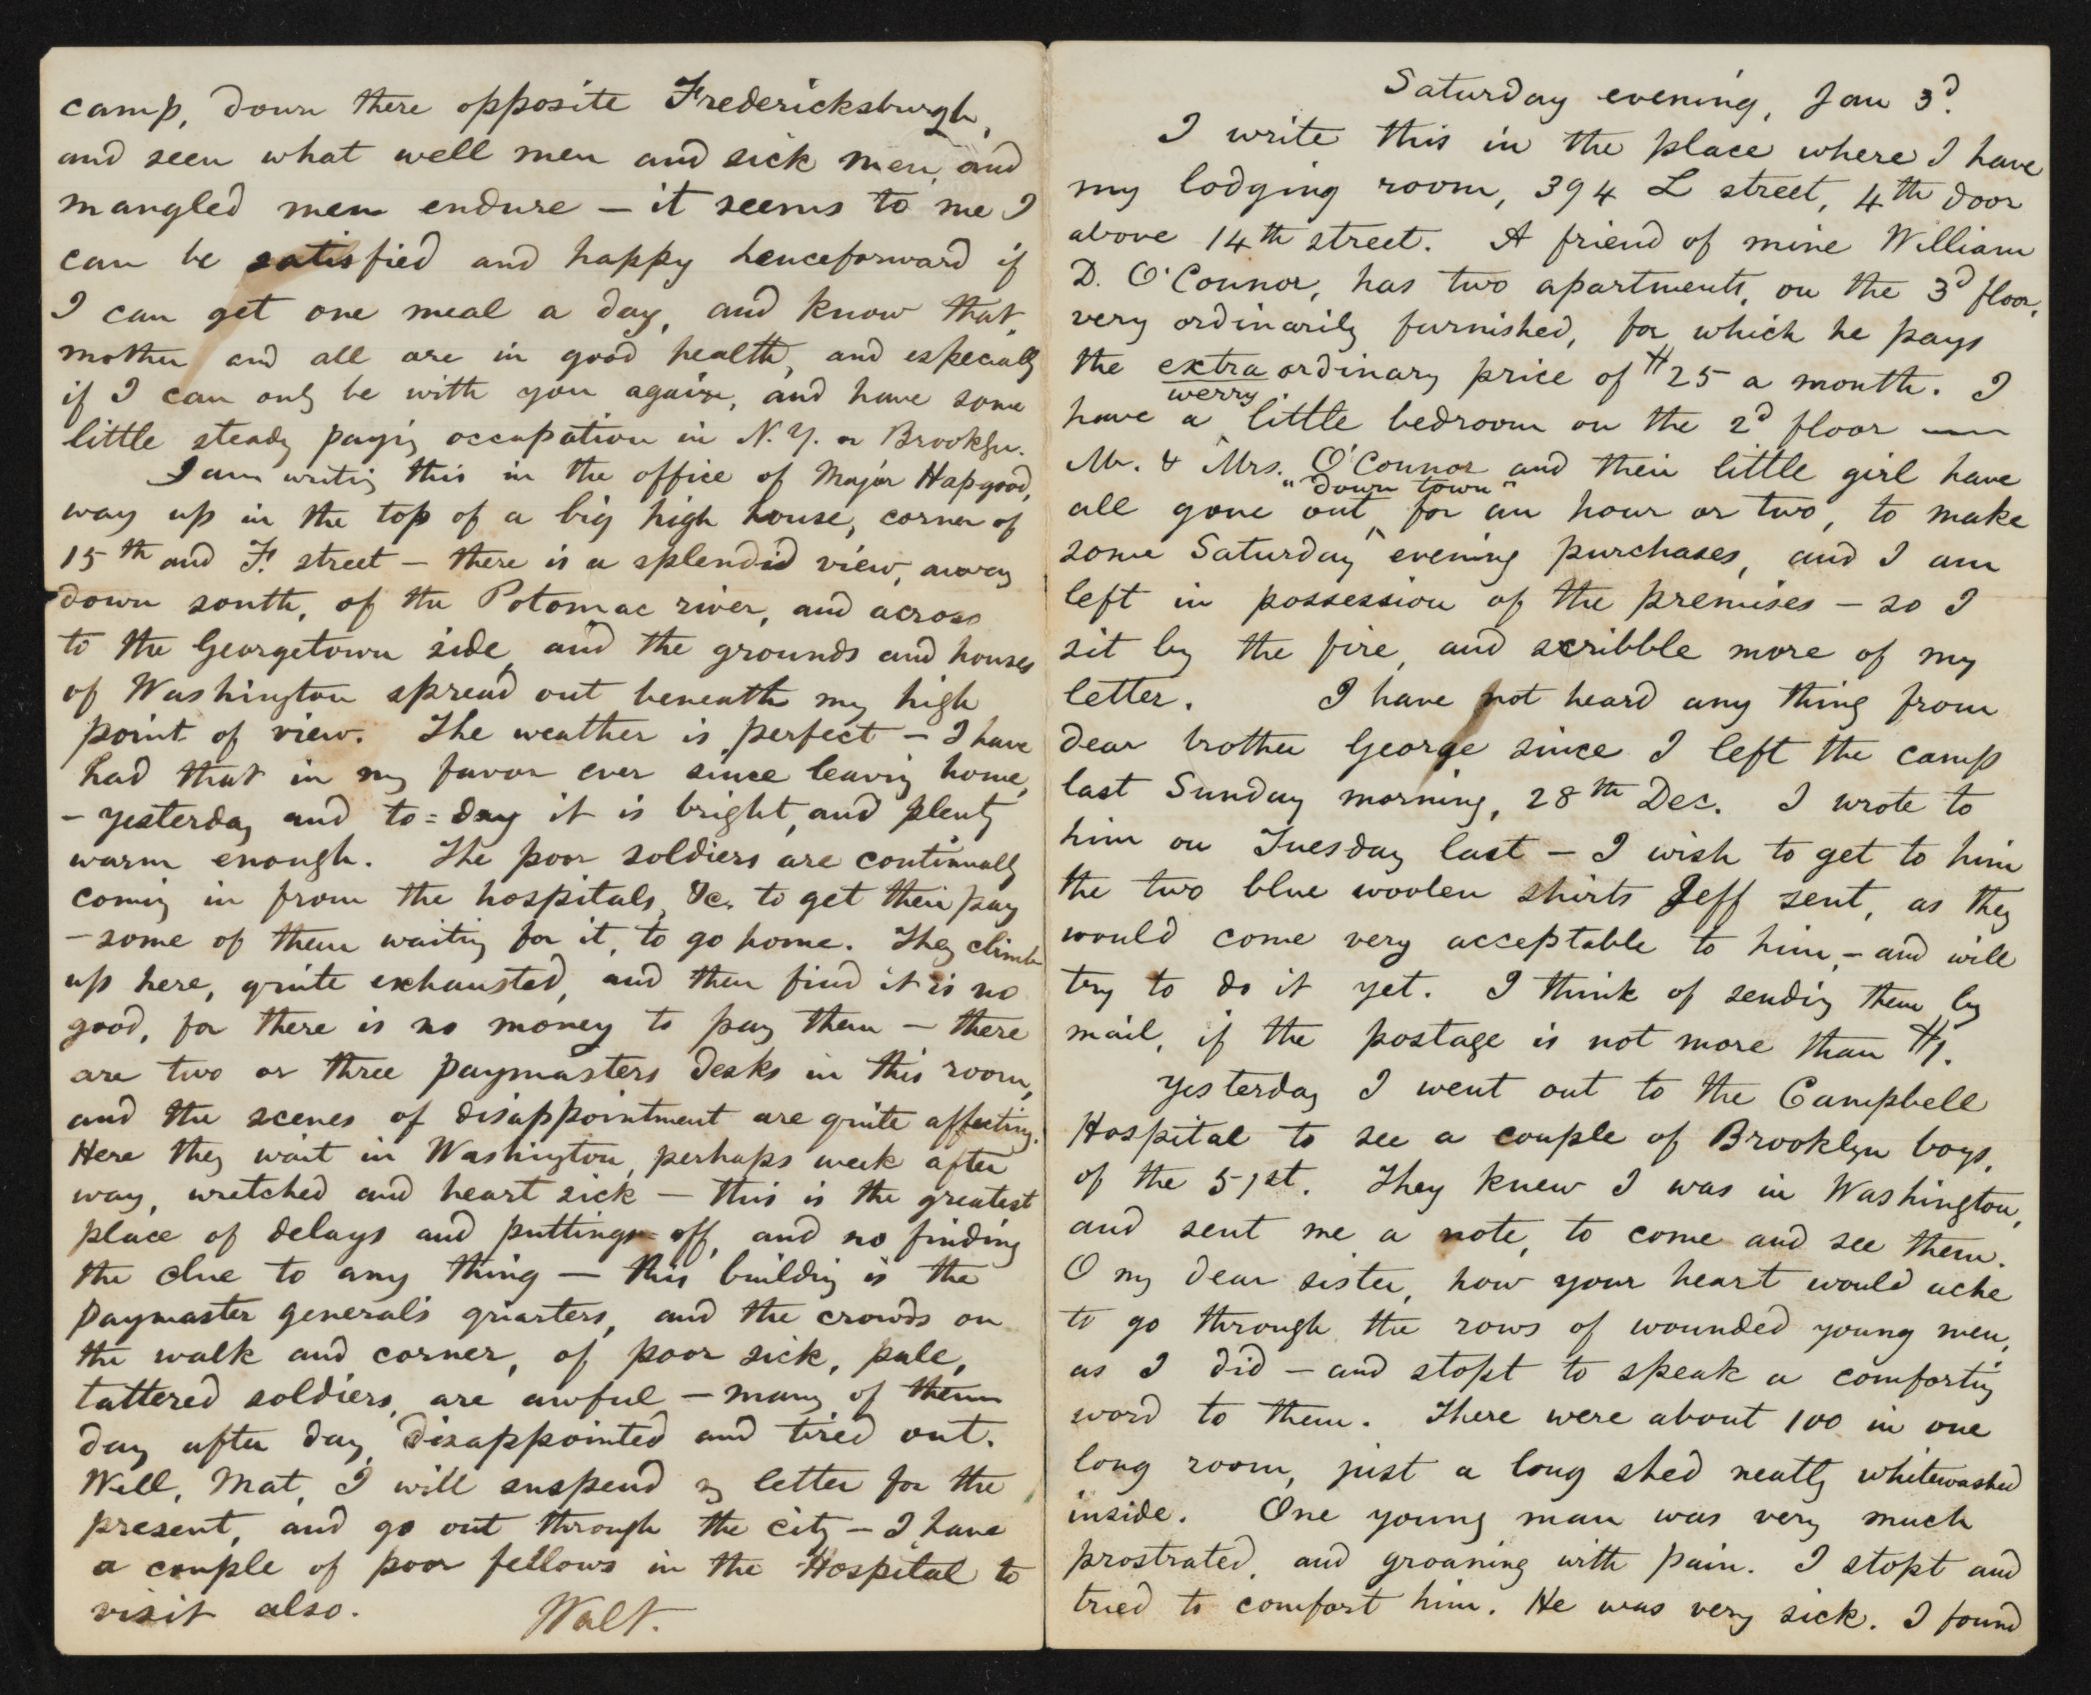 camp, down there opposite Fredericksburgh,
and seen what well men and sick men, and
mangled men endure — it seems to me I
can be satisfied and happy henceforward if
I can get one meal a day, and know that
mother and all are in good health, and especially
if I can only be with you again, and have some
little steady paying occupation in N. Y. or Brooklyn.
I am writing this in the office of Major Hapgood,
way up in the top of a big high house, corner of
15th and F. street — there is a splendid view, away
down south, of the Potomac river, and across
to the Georgetown side, and the grounds and houses
of Washington spread out beneath my high
point of view. The weather is perfect — I have
had that in my favor ever since leaving home,
— yesterday and to=day it is bright, and plenty
warm enough. The poor soldiers are continually
coming in from the hospitals, &c. to get their pay
— some of them waiting for it, to go home. They climb
up here, quite exhausted, and then find it is no
good, for there is no money to pay them — there
are two or three paymasters desks in this room,
and the scenes of disappointment are quite affecting.
Here they wait in Washington, perhaps week after
way, wretched and heart sick — this is the greatest
place of delays and puttings=off, and no finding
the clue to any thing — this building is the
paymaster general's quarters, and the crowds on
the walk and corner, of poor sick, pale,
tattered soldiers, are awful — many of them
day after day, disappointed and tired out.
Well, Mat, I will suspend my letter for the
present, and go out through the city — I have
a couple of poor fellows in the Hospital to
visit also. Walt.
Saturday evening, Jan 3d.
I write this in the place where I have
my lodging room, 394 L street, 4th door
above 14th street. A friend of mine William
D. O'Connor, has two apartments, on the 3d floor,
very ordinarily furnished, for which he pays
the extra ordinary price of $25 a month. I
werry
have a little bedroom on the 2d floor —
Mr. & Mrs. O'Connor and their little girl have
"down town"
all gone out, for an hour or two, to make
some Saturday evening purchases, and I am
left in possession of the premises — so I
sit by the fire, and scribble more of my
letter. I have not heard any thing from
dear brother George since I left the camp
last Sunday morning, 28th Dec. I wrote to
him on Tuesday last — I wish to get to him
the two blue woolen shirts Jeff sent, as they
would come very acceptable to him, — and will
try to do it yet. I think of sending them by
mail, if the postage is not more than $1.
Yesterday I went out to the Campbell
Hospital to see a couple of Brooklyn boys,
of the 51st. They knew I was in Washington,
and sent me a note, to come and see them.
O my dear sister, how your heart would ache
to go through the rows of wounded young men,
as I did — and stopt to speak a comforting
word to them. There were about 100 in one
long room, just a long shed neatly whitewashed
inside. One young man was very much
prostrated, and groaning with pain. I stopt and
tried to comfort him. He was very sick. I found